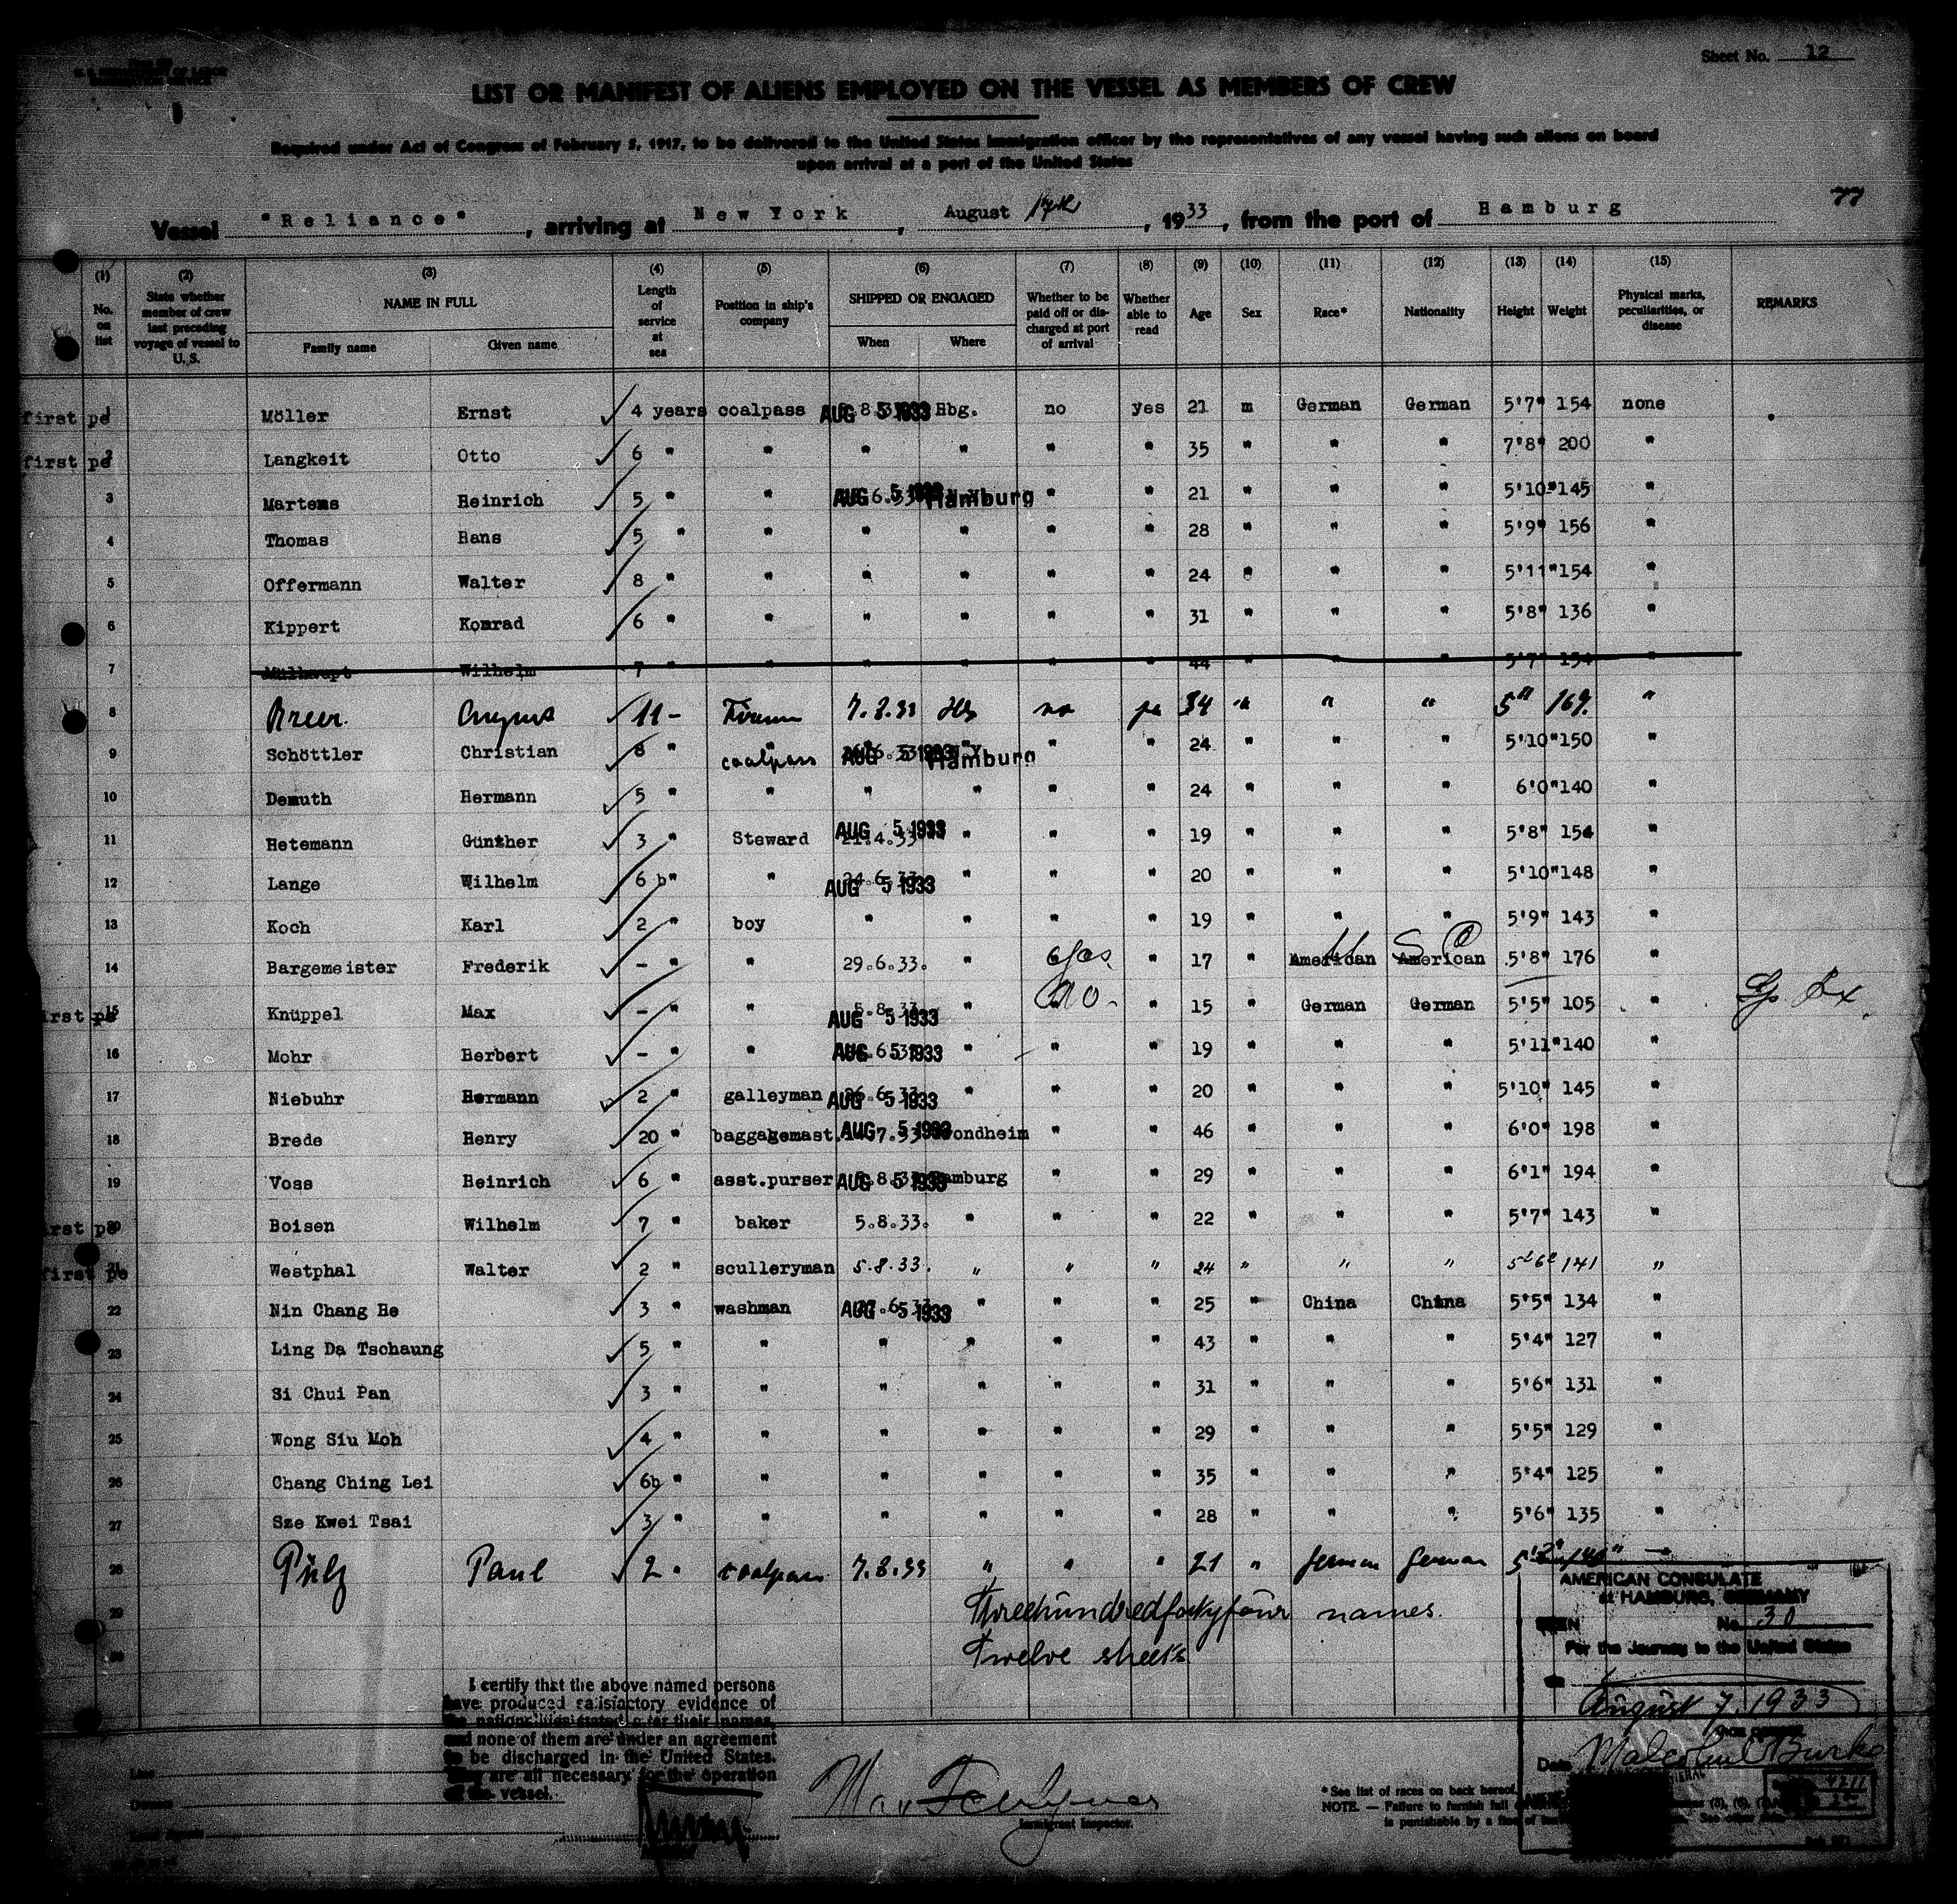 Sheet No. 12
LIST OR MANIFEST OF ALIENS EMPLOYED ON THE VESSEL AS MEMBERS OF CREW
Required under Act of Congress of February 5, 1917, to be delivered to the United States immigration officer by the representatives of any vessel having such aliens on board
upon arrival at a port of the United States
77
Vessel "Reliance", arriving at New York, August 17th, 1933, from the port of Hamburg
(1) (2) (3) (4) (5) (6) (7) (8) (9) (10) (11) (12) (13) (14) (15)
No. on list State whether member of crew last preceding voyage of vessel to U.S. NAME IN FULL Family name Given name Length of service at sea Position in ship's company SHIPPED OR ENGAGED When Where Whether to be paid off or discharged at port of arrival Whether able to read Age Sex Race* Nationality Height Weight Physical marks, peculiarities, or disease REMARKS
first pe 1 Möller Ernst 4 years coalpass AUG 5 1933 Hbg. no yes 21 m German German 5'7" 154 none
first pe 2 Langkeit Otto 6 " " " " " " 35 " " " 7'8" 200 "
3 Martens Heinrich 5 " " AUG 5 1933 Hamburg " " 21 " " " 5'10" 145 "
4 Thomas Hans 5 " " " " " " 28 " " " 5'9" 156 "
5 Offermann Walter 8 " " " " " " 24 " " " 5'11" 154 "
6 Kippert Konrad 6 " " " " " " 31 " " " 5'8" 136 "
7 Mülhaupt Wilhelm 7 " " " " " " 44 " " " 5'7" 154 "
8 August 11 - 7.8.33 Hbg no 34 " " " 5" 169. "
9 Schöttler Christian 8 " coalpass AUG 5 1933 Hamburg " " 24 " " " 5'10" 150 "
10 Demuth Hermann 5 " " " " " " 24 " " " 6'0" 140 "
11 Hetemann Günther 3 " Steward 21.4.33 AUG 5 1933 " " " 19 " " " 5'8" 154 "
12 Lange Wilhelm 6 b" " 24.6.33. AUG 5 1933 " " " 20 " " " 5'10" 148 "
13 Koch Karl 2 " boy " " " " 19 " " " 5'9" 143 "
14 Bargemeister Frederik - " " 29.6.33. " yes. " 17 " American American U S C 5'8" 176 "
first pe 15 Knüppel Max - " " 5.8.33. AUG 5 1933 " no. " 15 " German German 5'5" 105 "
16 Mohr Herbert - " " AUG 5 1933 " " " 19 " " " 5'11" 140 "
17 Niebuhr Hermann 2 " galleyman 26.6.33. AUG 5 1933 " " " 20 " " " 5'10" 145 "
18 Brede Henry 20 " baggagemast. AUG 5 1933 " " 46 " " " 6'0" 198 "
19 Voss Heinrich 6 " asst.purser AUG 5 1933 Hamburg " " 29 " " " 6'1" 194 "
first pe 20 Boisen Wilhelm 7 " baker 5.8.33. " " " 22 " " " 5'7" 143 "
first pe 21 Westphal Walter 2 " sculleryman 5.8.33. " " " 24 " " " 5'6" 141 "
22 Nin Chang He 3 " washman AUG 5 1933 " " " 25 " China China 5'5" 134 "
23 Ling Da Tschaung 5 " " " " " " 43 " " " 5'4" 127 "
24 Si Chui Pan 3 " " " " " " 31 " " " 5'6" 131 "
25 Wong Siu Moh 4 " " " " " " 29 " " " 5'5" 129 "
26 Chang Ching Lei 6b " " " " " " 35 " " " 5'4" 125 "
27 Sze Kwei Tsai 3 " " " " " " 28 " " " 5'6" 135 "
28 Pülz Paul 2 " coalpass 7.8.33 " " " 21 " German German
29 Threehundredfortyfour names.
30 Twelve sheets
AMERICAN CONSULATE
at HAMBURG, GERMANY
SEEN No. 30
For the Journey to the United States
August 7, 1933
Date Malcolm C Burke
I certify that the above named persons
have produced satisfactory evidence of
the nationalities stated after their names,
and none of them are under an agreement
to be discharged in the United States.
They are all necessary for the operation
of the vessel.
Line
Owners
Local Agents
Immigrant Inspector.
* See list of races on back hereof.
NOTE. — Failure to furnish full
is punishable by a fine of